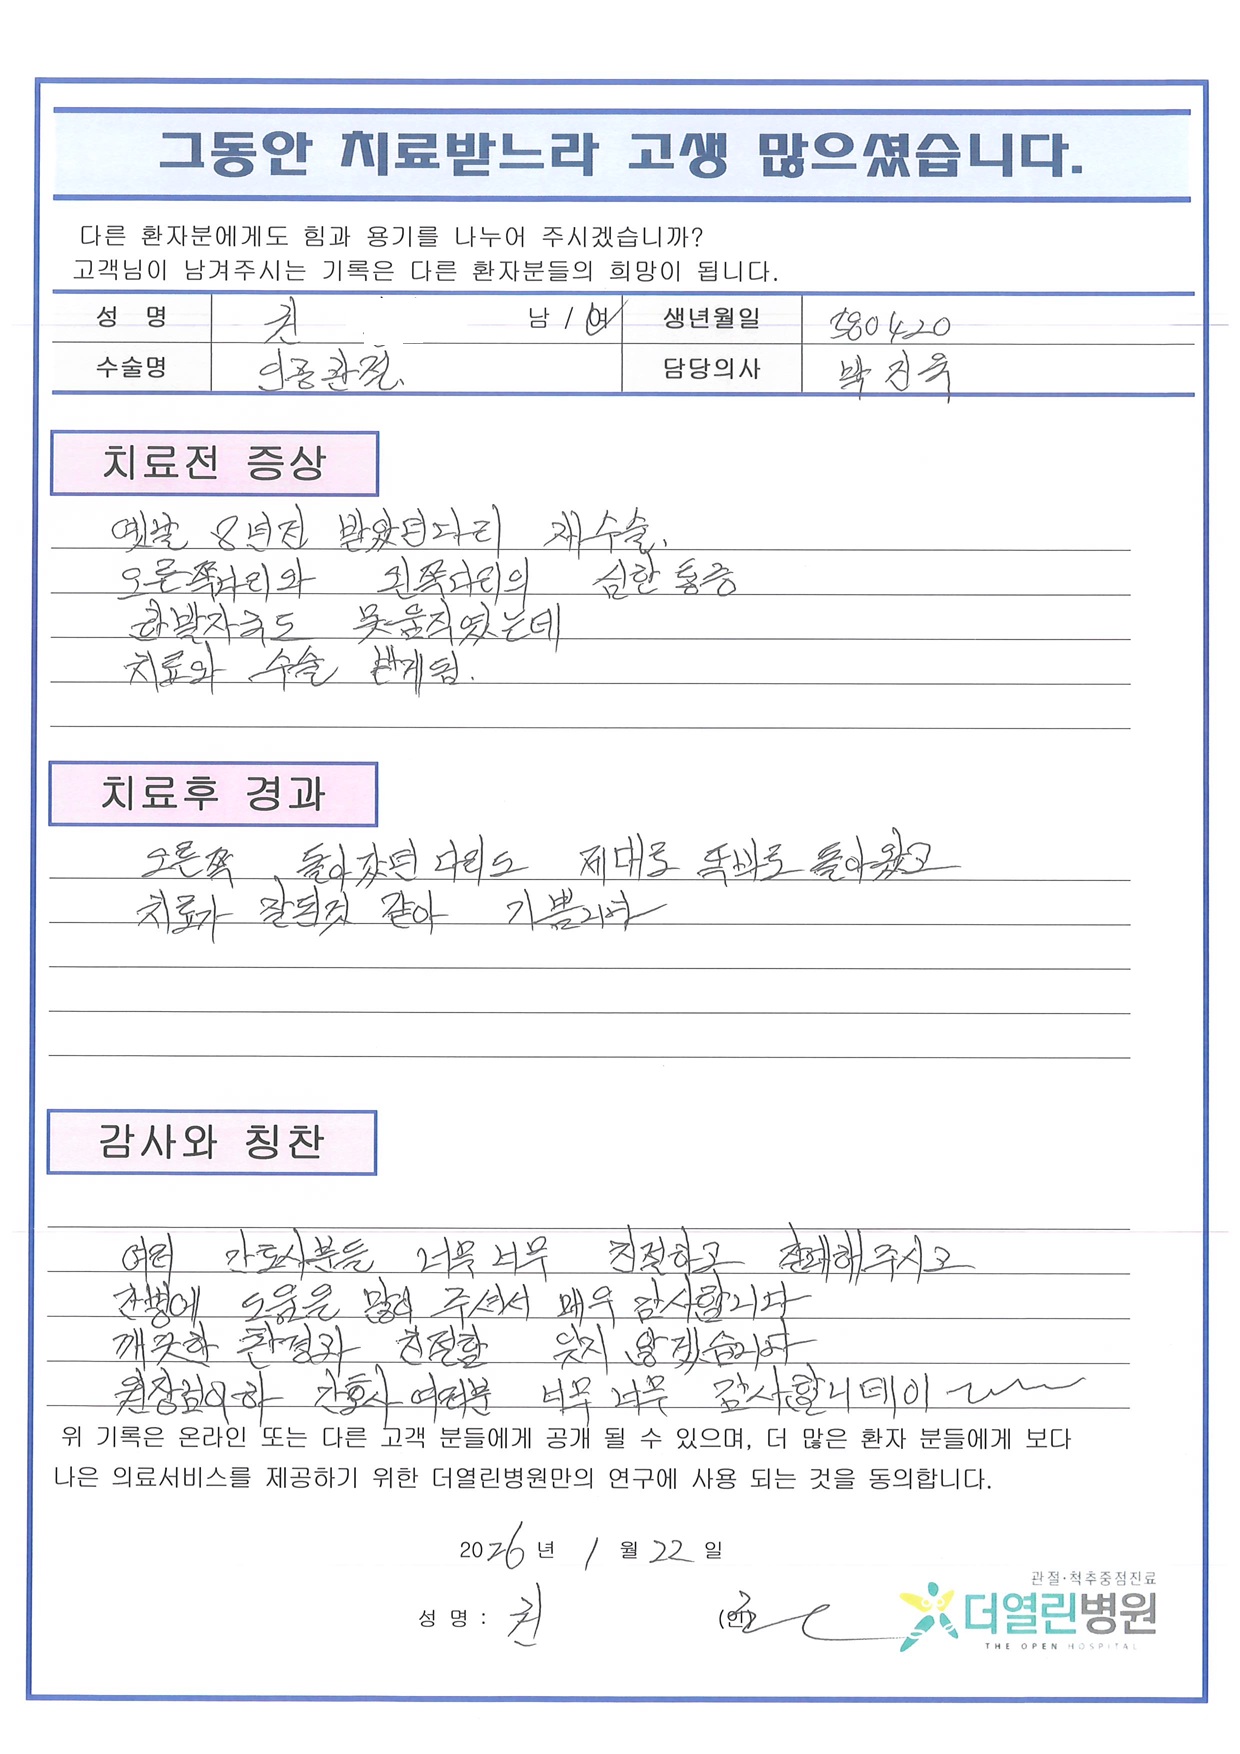 그동안 치료받느라 고생 많으셨습니다.
다른 환자분에게도 힘과 용기를 나누어 주시겠습니까?
고객님이 남겨주시는 기록은 다른 환자분들의 희망이 됩니다.
성 명 권 남 / 여 생년월일 580420
수술명 인공관절. 담당의사 박진욱
치료전 증상
옛날 8년전 받았던다리 재수술.
오른쪽다리와 왼쪽다리의 심한 통증
한발자국도 못움직였는데
치료와 수술 받게됨.
치료후 경과
오른쪽 돌아갔던 다리도 제대로 똑바로 돌아왔고
치료가 잘된것 같아 기쁨니다
감사와 칭찬
여러 간호사분들 너무너무 친절하고 잘해주시고
간병에 도움을 많이 주셔서 매우 감사합니다
깨끗한 환경과 친절함 잊지 않겠습니다
원장님이하 간호사 여러분 너무 너무 감사합니데이
위 기록은 온라인 또는 다른 고객 분들에게 공개 될 수 있으며, 더 많은 환자 분들에게 보다
나은 의료서비스를 제공하기 위한 더열린병원만의 연구에 사용 되는 것을 동의합니다.
2026 년 1 월 22 일
성 명 : 권 (인)
관절·척추중점진료
더열린병원
THE OPEN HOSPITAL